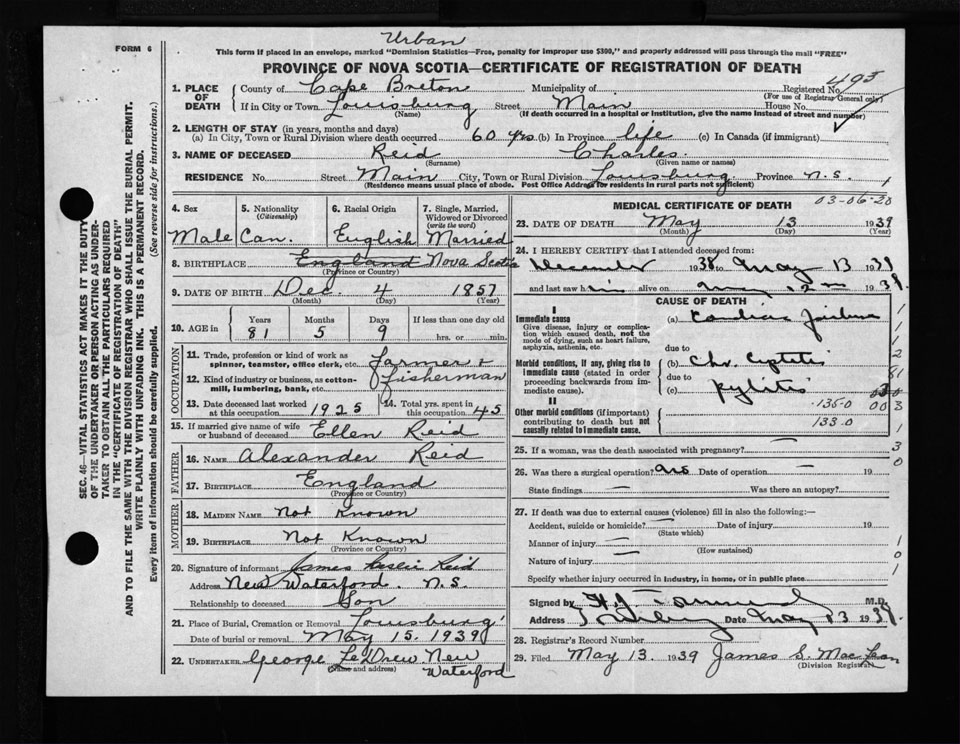 Urban
FORM 6
This form if placed in an envelope, marked "Dominion Statistics—Free, penalty for improper use $300," and properly addressed will pass through the mail "FREE"
PROVINCE OF NOVA SCOTIA—CERTIFICATE OF REGISTRATION OF DEATH
493
1. PLACE OF DEATH
County of Cape Breton Municipality of Registered No.
(For use of Registrar General only)
If in City or Town Louisburg Street Main House No.
(Name) (If death occurred in a hospital or institution, give the name instead of street and number)
2. LENGTH OF STAY (in years, months and days)
(a) In City, Town or Rural Division where death occurred 60 yrs (b) In Province life (c) In Canada (if immigrant)
3. NAME OF DECEASED Reid Charles.
(Surname) (Given name or names)
RESIDENCE No. Street Main City, Town or Rural Division Louisburg Province N.S.
(Residence means usual place of abode. Post Office Address for residents in rural parts not sufficient)
4. Sex Male
5. Nationality (Citizenship) Can.
6. Racial Origin English
7. Single, Married, Widowed or Divorced (write the word) Married
8. BIRTHPLACE England Nova Scotia
(Province or Country)
9. DATE OF BIRTH Dec. 4 1857
(Month) (Day) (Year)
10. AGE in Years Months Days If less than one day old
81 5 9 hrs. or min.
OCCUPATION
11. Trade, profession or kind of work as spinner, teamster, office clerk, etc. Farmer +
12. Kind of industry or business, as cotton-mill, lumbering, bank, etc. Fisherman
13. Date deceased last worked at this occupation 1925
14. Total yrs. spent in this occupation 45
15. If married give name of wife or husband of deceased Ellen Reid
FATHER
16. NAME Alexander Reid
17. BIRTHPLACE England
(Province or Country)
MOTHER
18. MAIDEN NAME Not Known
19. BIRTHPLACE Not Known
(Province or Country)
20. Signature of informant James Leslie Reid
Address New Waterford N.S.
Relationship to deceased Son
21. Place of Burial, Cremation or Removal Louisburg
Date of burial or removal May 15. 1939
22. UNDERTAKER George LeDrew New Waterford
(Name and address)
MEDICAL CERTIFICATE OF DEATH 03-06-20
23. DATE OF DEATH May 13 1939
(Month) (Day) (Year)
24. I HEREBY CERTIFY that I attended deceased from:
December 1938 to May 13 1939
and last saw him alive on May 12 1939
CAUSE OF DEATH
I
Immediate cause
Give disease, injury or complication which caused death, not the mode of dying, such as heart failure, asphyxia, asthenia, etc.
(a) Cardiac Failure
due to
Morbid conditions, if any, giving rise to immediate cause (stated in order proceeding backwards from immediate cause).
(b) Chr. Cystitis
due to
(c) Pylitis
II
Other morbid conditions (if important) contributing to death but not causally related to immediate cause.
135-0
133.0
25. If a woman, was the death associated with pregnancy? —
26. Was there a surgical operation? Date of operation — 19
State findings — Was there an autopsy?
27. If death was due to external causes (violence) fill in also the following:—
Accident, suicide or homicide? — Date of injury 19
(State which)
Manner of injury —
(How sustained)
Nature of injury —
Specify whether injury occurred in industry, in home, or in public place
Signed by M.D.
Address Date May 13 1939.
28. Registrar's Record Number
29. Filed May 13. 1939 James S. MacLean
(Division Registrar)
SEC. 46—VITAL STATISTICS ACT MAKES IT THE DUTY
OF THE UNDERTAKER OR PERSON ACTING AS UNDER-
TAKER TO OBTAIN ALL THE PARTICULARS REQUIRED
IN THE "CERTIFICATE OF REGISTRATION OF DEATH"
AND TO FILE THE SAME WITH THE DIVISION REGISTRAR WHO SHALL ISSUE THE BURIAL PERMIT.
WRITE PLAINLY WITH UNFADING INK. THIS IS A PERMANENT RECORD.
Every item of information should be carefully supplied. (See reverse side for instructions.)